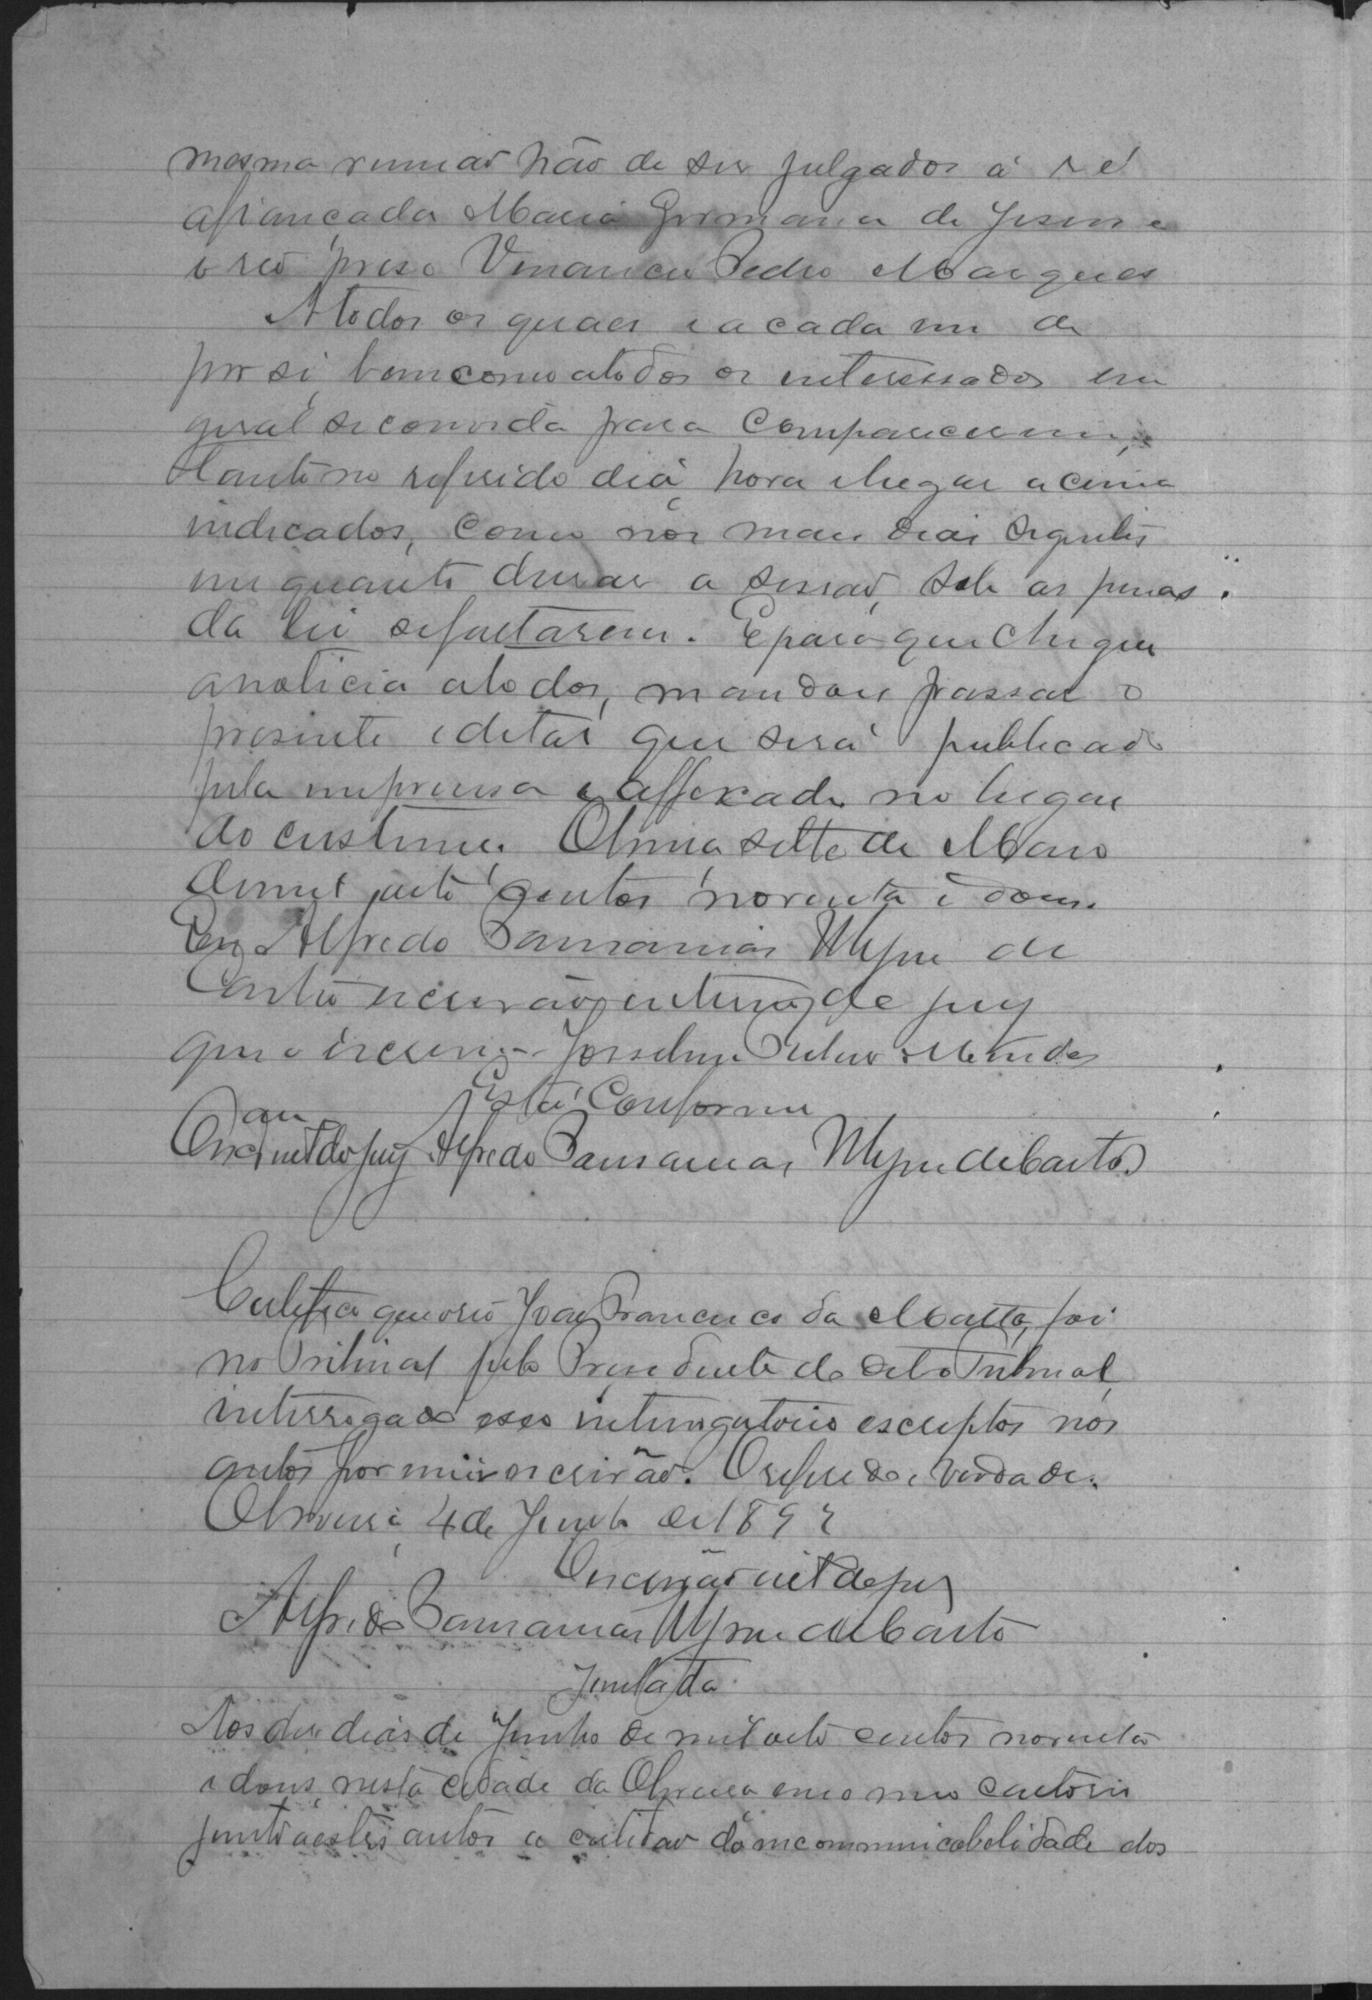 mesma reuniao hão de ser julgados a ré
afiançada Maria Germana de Jesus e
o reo preso Venancio Pedro Marques
A todos os quaes e a cada um de
por si, bem como a todos os interessados em
geral se convida para comparecerem,
tanto no referido dia, hora e lugar acima
indicados, como nos mais dias seguintes
em quanto durar a sessão, sob as penas
da lei se faltarem. E para que chegue
a noticia a todos, mandou passar o
presente edital que será publicado
pela imprensa e affixado no lugar
do custume. sette de Maio
de mil oito centos noventa e dous.
Eu Alfredo de
Castro escrivão interino de jury
que o escrevy. Mendes
Está Conforme
Alfredo de Castro
Certifico que o reo João Francisco da Matta, foi
no Tribunal pelo Presidente do dito Tribunal
interrogado interrogatorio escriptos nos
autos por mim escrivão. O referido e verdade.
4 de Junho de 1892
Escrivão int de jury
Alfredo de Castro
Juntada
Aos dez dias de Junho de mil oito centos noventa
e dous nesta cidade da em o meo cartorio
junto a estes autos a certidão da incommunicabelidade dos